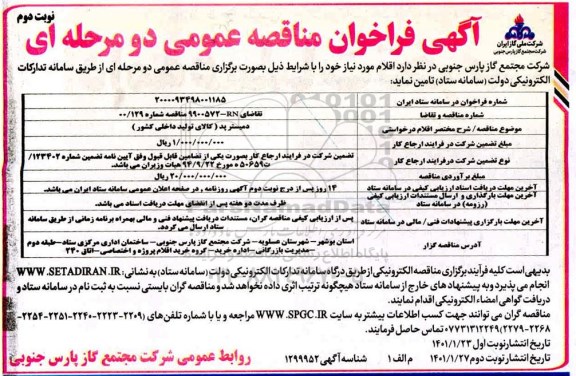 نوبت دوم
آگهی فراخوان مناقصه عمومی دو مرحله ای
شرکت ملی گاز ایران
شرکت مجتمع گاز پارس جنوبی
شرکت مجتمع گاز پارس جنوبی در نظر دارد اقلام مورد نیاز خود را با شرایط ذیل بصورت برگزاری مناقصه عمومی دو مرحله ای از طریق سامانه تدارکات
الکترونیکی دولت (سامانه ستاد) تامین نماید:
شماره فراخوان در سامانه ستاد ایران
شماره مناقصه و تقاضا تقاضای RN-9900572 شماره مناقصه 00/129
موضوع مناقصه / شرح مختصر اقلام درخواستی دمیستر پد (کالای تولید داخلی کشور)
مبلغ تضمین شرکت در فرایند ارجاع کار 1/000/000/000 ریال
نوع تضمین شرکت در فرایند ارجاع کار تضمین شرکت در فرایند ارجاع کار بصورت یکی از تضامین قابل قبول وفق آیین نامه تضمین شماره 123402/
ت50659ه مورخ 94/9/22 هیات وزیران می باشد.
مبلغ برآوردی مناقصه 20/000/000/000 ریال
آخرین مهلت دریافت اسناد ارزیابی کیفی در سامانه ستاد 14 روز پس از درج نوبت دوم آگهی روزنامه، در صفحه اعلان عمومی سامانه ستاد ایران می باشد.
آخرین مهلت بارگذاری و ارسال مستندات ارزیابی کیفی (رزومه) در سامانه ستاد ظرف مدت دو هفته پس از انقضای مهلت دریافت اسناد می باشد.
آخرین مهلت بارگزاری پیشنهادات فنی / مالی در سامانه ستاد پس از ارزیابی کیفی مناقصه گران، مستندات دریافت پیشنهاد فنی و مالی بهمراه برنامه زمانی از طریق سامانه
ستاد ارسال می گردد.
آدرس مناقصه گزار استان بوشهر – شهرستان عسلویه – شرکت مجتمع گاز پارس جنوبی – ساختمان اداری مرکزی ستاد – طبقه دوم
– مدیریت بازرگانی – اداره خرید – گروه خرید اقلام پروژه و اختصاصی – اتاق 240
بدیهی است کلیه فرآیند برگزاری مناقصه الکترونیکی از طریق درگاه سامانه تدارکات الکترونیکی دولت (سامانه ستاد) به نشانی: WWW.SETADIRAN.IR
انجام می پذیرد و به پیشنهاد های خارج از سامانه ستاد هیچگونه ترتیب اثری داده نخواهد شد و مناقصه گران بایستی نسبت به ثبت نام در سامانه ستاد و
دریافت گواهی امضاء الکترونیکی اقدام نمایند.
مناقصه گران می توانند جهت کسب اطلاعات بیشتر به سایت WWW.SPGC.IR مراجعه و یا با شماره تلفن های (2209-2223-2240-2251-2254-
2268-2279)07731312249 تماس حاصل فرمایند.
تاریخ انتشار نوبت اول 1401/1/23
تاریخ انتشار نوبت دوم 1401/1/27 م الف 1 شناسه آگهی 1299952 روابط عمومی شرکت مجتمع گاز پارس جنوبی